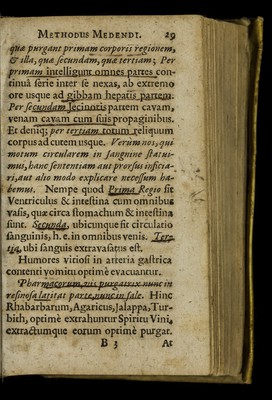 METHODUS MEDENDI. 29
quæ purgant primam corporis regionem,
& illa, quæ secundam, quæ tertiam; Per
primam intelligunt omnes partes con-
tinuâ serie inter se nexas, ab extremo
ore usque ad gibbam hepatis partem.
Per secundam Jecinoris partem cavam,
venam cavam cum suis propaginibus.
Et deniq; per tertiam totum reliquum
corpus ad cutem usque. Verùm nos, qui
motum circularem in sanguine statui-
mus, hanc sententiam aut prorsus inficia-
ri, aut alio modo explicare necessum ha-
bemus. Nempe quod Prima Regio sit
Ventriculus & intestina cum omnibus
vasis, quæ circa stomachum & intestina
sunt. Secunda, ubicunque fit circulatio
sanguinis, h. e. in omnibus venis. Ter-
tia, ubi sanguis extravasatus est.
Humores vitiosi in arteria gastrica
contenti vomitu optimè evacuantur.
Pharmacorum vis purgatrix nunc in
resinosa latitat parte, nunc in sale. Hinc
Rhabarbarum, Agaricus, Jalappa, Tur-
bith, optimè extrahuntur Spiritu Vini,
extractumque eorum optimè purgat.
B 3 At